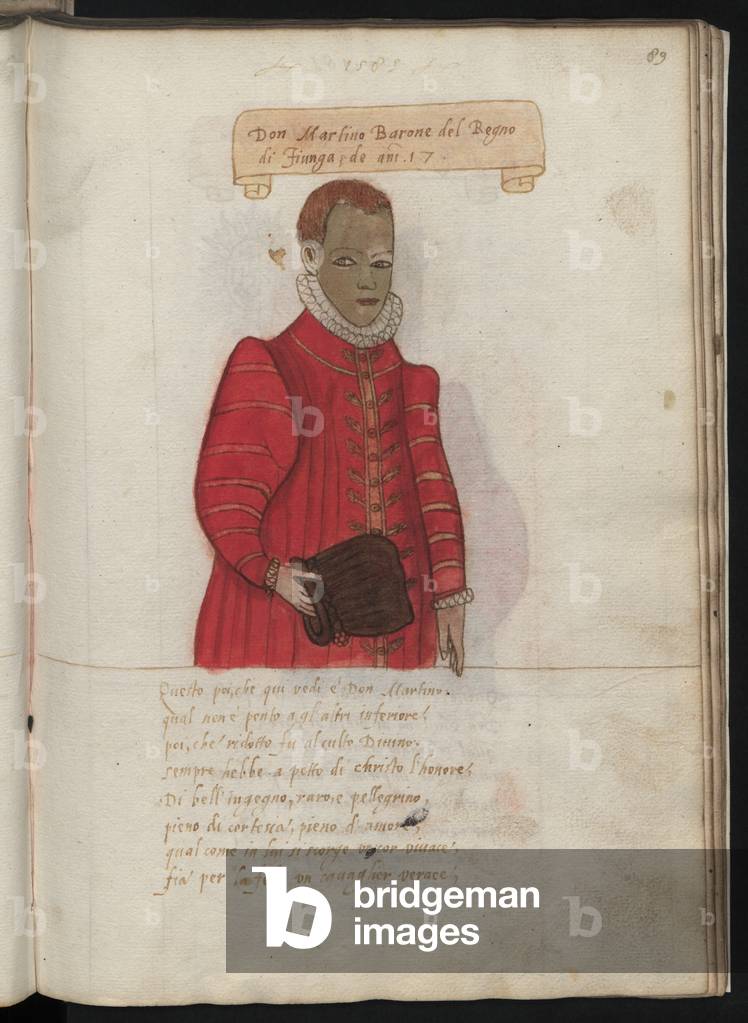 1585
89
Don Martino Barone del Regno
di Fiunga, de añi. 17.
Questo poi, che qui vedi è Don Martino.
qual non è ponto a gl'altri inferiore,
poi, che ridotto fu al culto Divino.
sempre hebbe a petto di christo l'honore;
Di bell'ingegno, raro, e pellegrino,
pieno di cortesia, pieno d'amore,
qual come in lui si scorge un cor vivace,
fia per la fede un cavaglier verace
b bridgeman
images